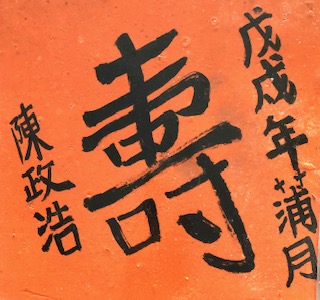 戊戌年蒲月
壽
陳政浩